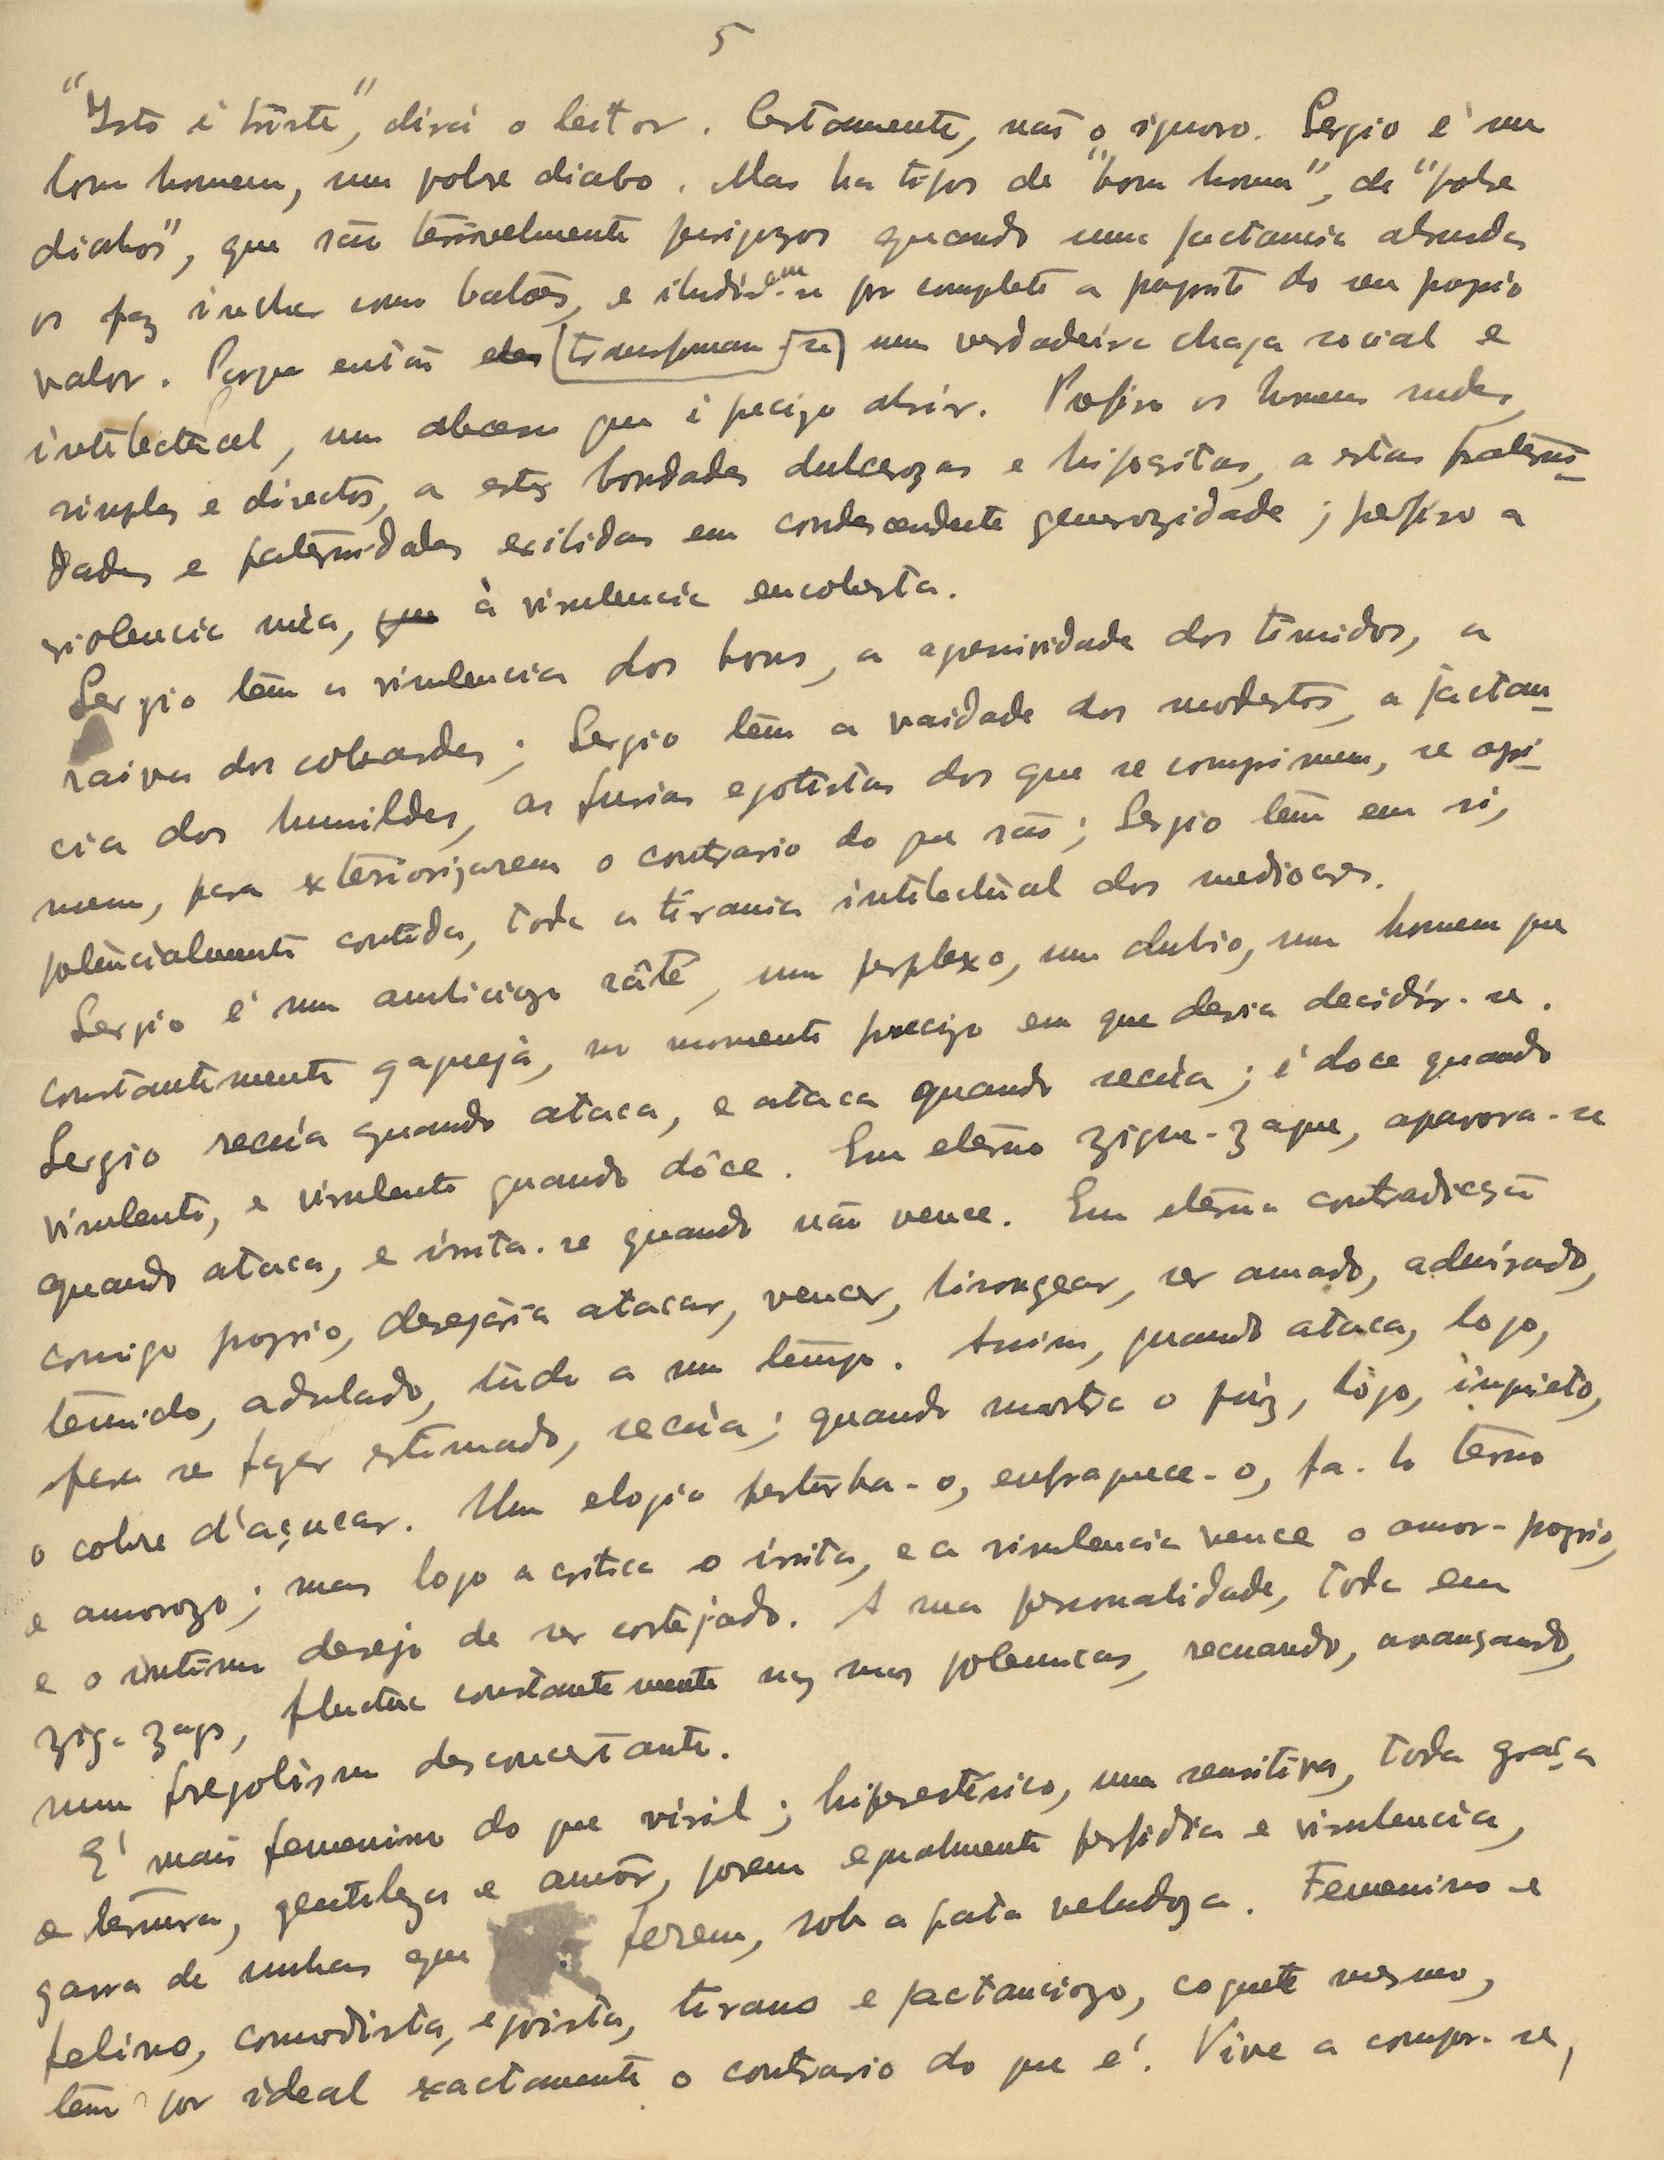 5
"Isto é triste", dirá o leitor. Certamente, não o ignoro. Sergio é um
bom homem, um pobre diabo. Mas ha tipos de "bom homem", de "pobre
diabos", que são terrivelmente perigozos quando uma jactancia absurda
os faz inchar como balões, e iludirem-se por completo a proposito do seu proprio
valor. Porque então eles transformam-se num verdadeira chaga social e
intelectual, um abcesso que é precizo abrir. Prefiro os homens rudes,
simples e directos, a estas bondades dulcerozas e hipocritas, a estas fraterni-
dades e paternidades exibidas em condescendente generozidade; prefiro a
violencia núa, que à virulencia encoberta.
Sergio tem a virulencia dos bons, a agressividade dos timidos, a
raiva dos cobardes; Sergio tem a vaidade dos modestos, a jactan-
cia dos humildes, as furias egotistas dos que se comprimem, se opri-
mem, para exteriorizarem o contrario do que são; Sergio tem em si,
potencialmente contida, toda a tirania intelectual dos mediocres.
Sergio é um ambiciozo râté, um perplexo, um dubio, um homem que
constantemente gagueja, no momento precizo em que devia decidir-se.
Sergio recúa quando ataca, e ataca quando recúa; é doce quando
virulento, e virulento quando dôce. Em eterno zigue-zague, apavora-se
quando ataca, e irrita-se quando não vence. Em eterna contradicção
comigo proprio, desejaria atacar, vencer, lisongear, ser amado, admirado,
temido, adulado, tudo a um tempo. Assim, quando ataca, logo,
para se fazer estimado, recúa; quando mostra o fúz, lógo, inquieto,
o cobre d'açucar. Um elogio perturba-o, enfraquece-o, fa-lo terno
e amorozo; mas logo a critica o irrita, e a virulencia vence o amor-proprio,
e o intimo desejo de ser cortejado. A sua personalidade, toda em
zig-zags, fluctua constantemente nas suas polemicas, recuando, avançando,
num fregolismo desconcertante.
E' mais femenino do que viril; hiperestésico, uma sensitiva, toda graça
e ternura, gentileza e amôr, porem egualmente perfidia e virulencia,
garra de unhas que ferem, sob a pata veludoza. Femenino e
felino, comodista, egoista, tirano e jactanciozo, coquete mesmo,
tem por ideal exactamente o contrario do que é. Vive a compor-se,